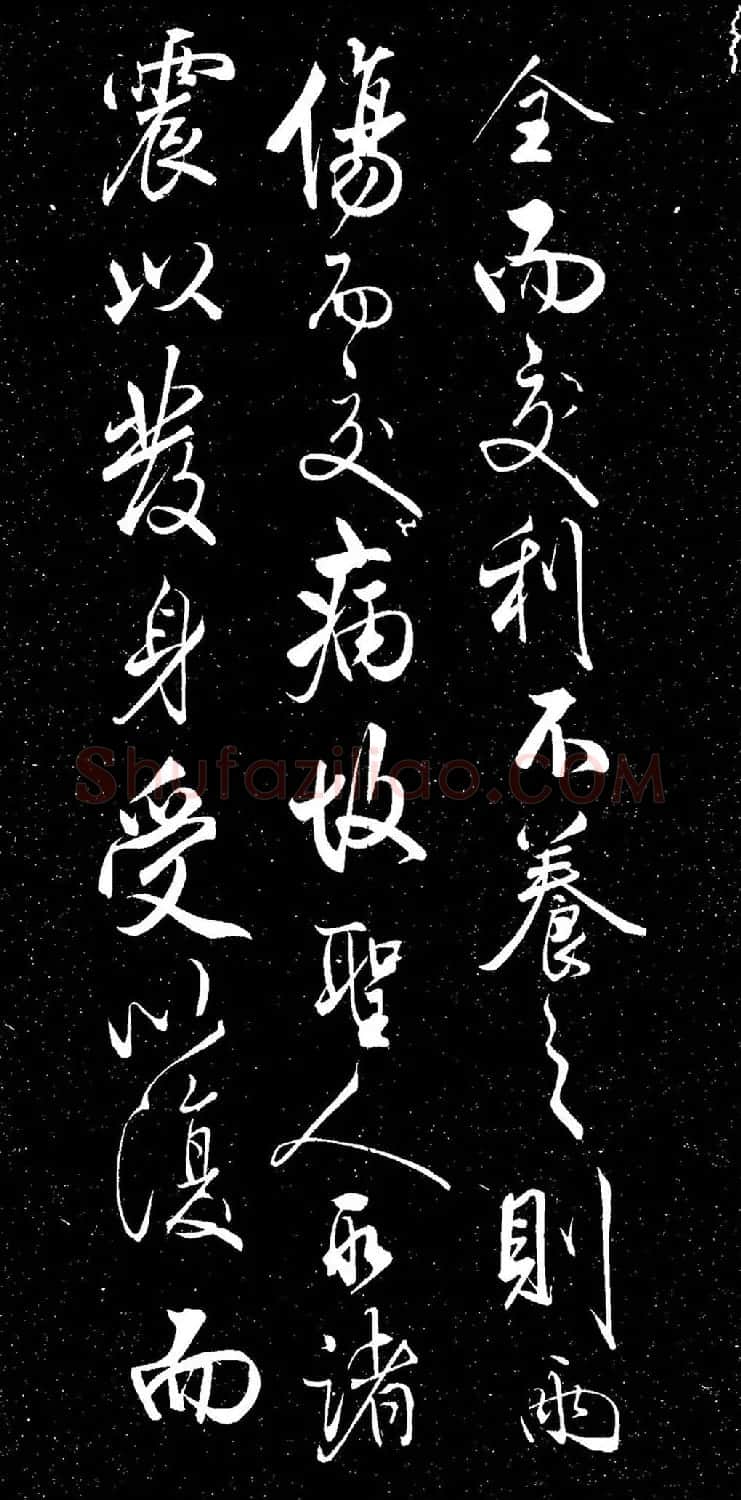 全而交利不養之則兩
傷而交病故聖人取諸
震以發身受以復而
Shufaziliao.COM